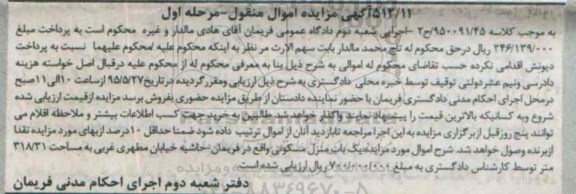 ۵۱۳/۱۱آگهی مزایده اموال منقول-مرحله اول
به موجب کلاسه ۹۵۰۰۹۱/۴۵ج۲ -اجرایی شعبه دوم دادگاه عمومی فریمان آقای هادی مالدار و غیره محکوم است به پرداخت مبلغ
۲۴۶/۱۳۹/۰۰۰ ریال درحق محکوم له تاج محمد مالدار بابت سهم الارث مر نظر به اینکه محکوم علیه /محکوم علیهما نسبت به پرداخت
دیونش اقدامی نکرده حسب تقاضای محکوم له اموالی به شرح ذیل بنا به معرفی محکوم له از محکوم علیه درقبال اصل خواسته هزینه
دادرسی ونیم عشردولتی توقیف توسط خبره محلی دادگستری به شرح ذیل ارزیابی ومقررگردیده درتاریخ ۹۵/۵/۲۷ ازساعت ۱۰الی۱۱صبح
درمحل اجرای احکام مدنی دادگستری فریمان با حضور نماینده دادستان از طریق مزایده حضوری بفروش برسد مزایده ازقیمت ارزیابی شده
شروع وبه کسانیکه بالاترین قیمت را پیشنهاد نمایند واگذار خواهد شد. طالبین به خرید جهت کسب اطلاعات بیشتر و ملاحظه اقلام می
توانند پنج روزقبل ازبرگزاری مزایده به این اجرا مراجعه تابازدید آنان از اموال ترتیب داده شود ضمنا حداقل ۱۰درصد ازبهای مورد مزایده نقدا
ازبرنده وصول خواهد شد. شرح اموال مورد مزایده یک باب منزل مسکونی واقع در فریمان -حاشیه خیابان مطهری غربی به مساحت ۳۱۸/۳۱
متر توسط کارشناس دادگستری به مبلغ ریال ارزیابی شده است.
دفتر شعبه دوم اجرای احکام مدنی فریمان